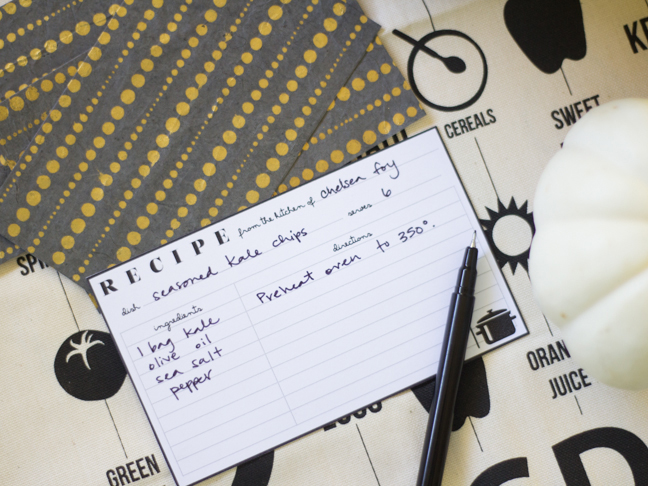 CEREALS
SWEET
RECIPE from the kitchen of chelsea foy
dish seasoned kale chips serves 6
ingredients
1 bag kale
olive oil
sea salt
pepper
directions
Preheat oven to 350°.
ORAN
JUICE
GREEN